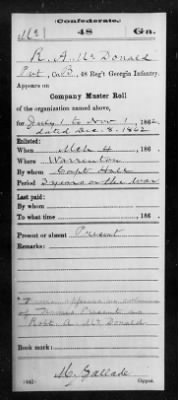 Confederate.
Mc | 48 | Ga.
R. A. McDonald
Pvt, Co. B, 48 Reg't Georgia Infantry.
Appears on
Company Muster Roll
of the organization named above,
for July 1 to Nov 1, 1862.
dated Dec. 8, 1862
Enlisted:
When Mch 4, 186 .
Where Warrenton
By whom Capt Hall
Period 3 years or the War
Last paid:
By whom
To what time , 186 .
Present or absent Present
Remarks:
Name appears in column
of Names Present as
Robt. A. McDonald.
Book mark:
(642)
Copyist.